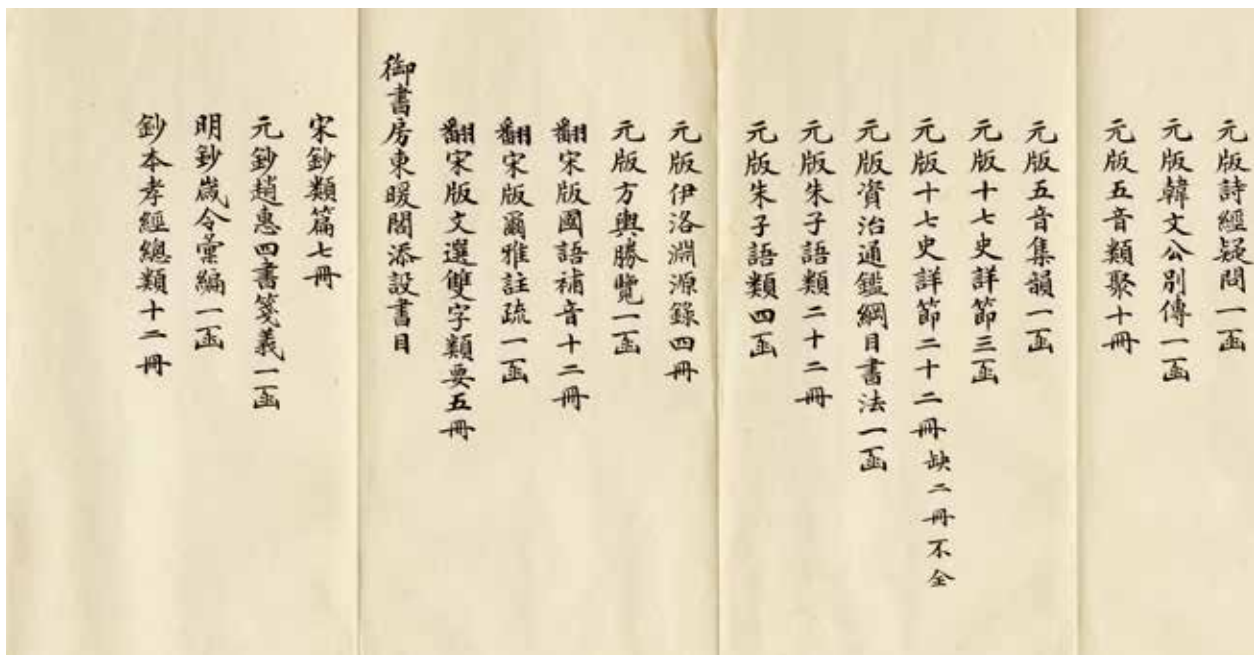 元版詩經疑問一函
元版韓文公別傳一函
元版五音類聚十冊
元版五音集韻一函
元版十七史詳節三函
元版十七史詳節二十二冊缺二冊不全
元版資治通鑑綱目書法一函
元版朱子語類二十二冊
元版朱子語類四函
元版伊洛淵源錄四冊
元版方輿勝覽一函
翻宋版國語補音十二冊
翻宋版爾雅註疏一函
翻宋版文選雙字類要五冊
御書房東暖閣添設書目
宋鈔類篇七冊
元鈔趙惪四書箋義一函
明鈔歲令彙編一函
鈔本孝經總類十二冊